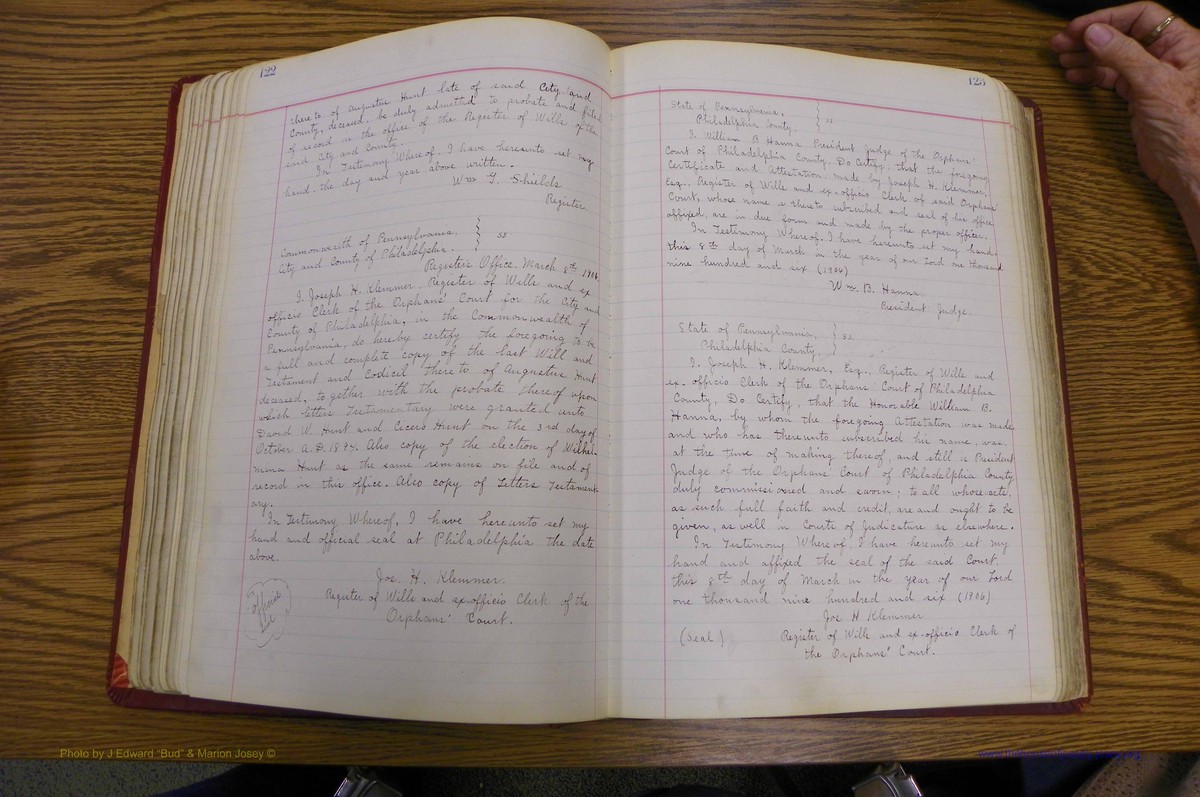 122
thereto of Augustus Hunt late of said City and
County, deceased, be duly admitted to probate and filed
of record in the office of the Register of Wills of the
said City and County.
In Testimony Whereof, I have hereunto set my
hand the day and year above written.
Wm G. Shields
Register
Commonwealth of Pennsylvania,
City and County of Philadelphia. } ss
Register's Office. March 8th 1906
I, Joseph H. Klemmer, Register of Wills and ex
officio Clerk of the Orphans' Court for the City and
County of Philadelphia, in the Commonwealth of
Pennsylvania, do hereby certify the foregoing to be
a full and complete copy of the last Will and
Testament and Codicil thereto of Augustus Hunt
deceased, together with the probate thereof upon
which letters Testamentary were granted unto
David W. Hunt and Cicero Hunt on the 3rd day of
October A.D. 1894. Also copy of the election of Wilhel-
mina Hunt as the same remains on file and of
record in this office. Also copy of Letters Testament-
ary.
In Testimony Whereof, I have hereunto set my
hand and official seal at Philadelphia the date
above.
Jos. H. Klemmer.
Register of Wills and ex officio Clerk of the
Orphans' Court.
Official
123
State of Pennsylvania,
Philadelphia County. } ss
I, William B Hanna President Judge of the Orphans'
Court of Philadelphia County, Do Certify, that the foregoing
Certificate and Attestation, made by Joseph H. Klemmer,
Esq., Register of Wills and ex-officio Clerk of said Orphans'
Court, whose name is thereto subscribed and seal of his office
affixed, are in due form and made by the proper officer.
In Testimony Whereof, I have hereunto set my hand
this 8th day of March in the year of our Lord one thousand
nine hundred and six (1906)
Wm. B. Hanna
President Judge.
State of Pennsylvania,
Philadelphia County. } ss.
I, Joseph H. Klemmer, Esq., Register of Wills and
ex-officio Clerk of the Orphans' Court of Philadelphia
County, Do Certify, that the Honorable William B.
Hanna, by whom the foregoing Attestation was made
and who has thereunto subscribed his name, was,
at the time of making thereof, and still is President
Judge of the Orphans' Court of Philadelphia County
duly commissioned and sworn; to all whose acts,
as such full faith and credit, are and ought to be
given, as well in Courts of Judicature as elsewhere.
In Testimony Whereof, I have hereunto set my
hand and affixed the seal of the said Court,
this 8th day of March in the year of our Lord
one thousand nine hundred and six (1906)
Jos H Klemmer
(Seal) Register of Wills and ex-officio Clerk of
the Orphans' Court.
Photo by J Edward "Bud" & Marion Josey ©